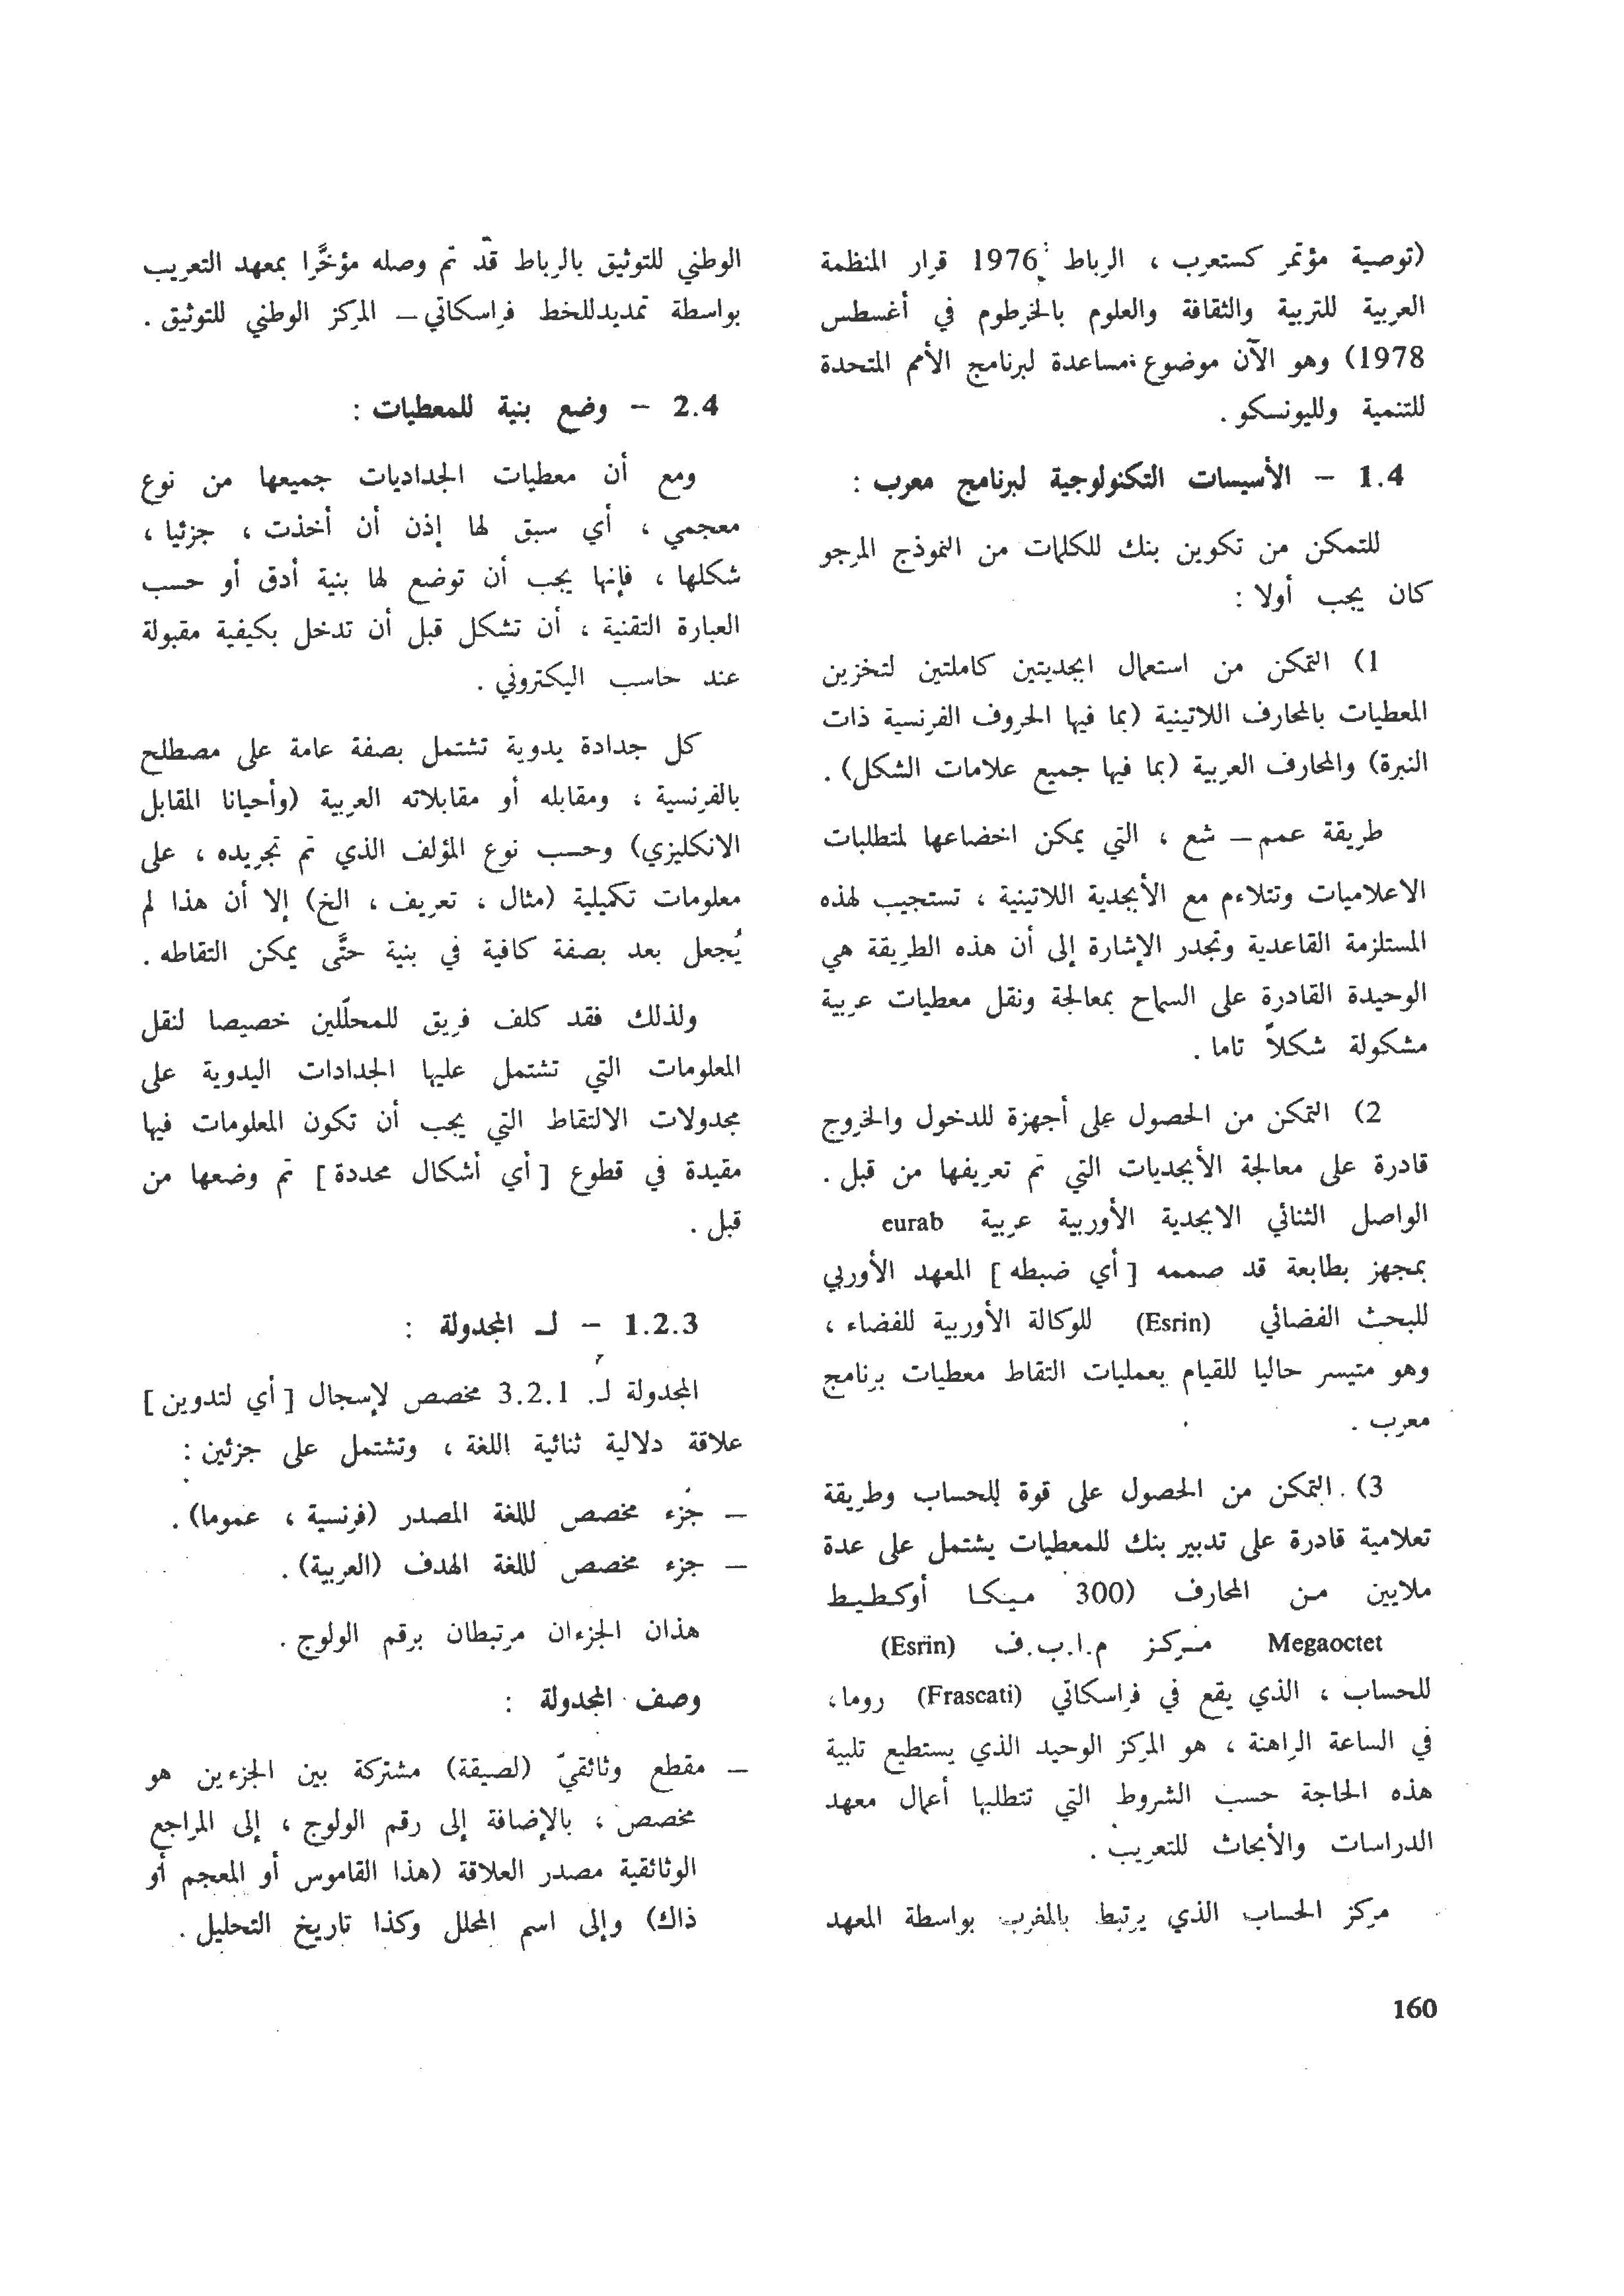 (توصية مؤتمر كستعرب ، الرباط 1976 قرار المنظمة
العربية للتربية والثقافة والعلوم بالخرطوم في أغسطس
1978) وهو الآن موضوع مساعدة لبرنامج الأمم المتحدة
للتنمية ولليونسكو .
1.4 – الأسيسات التكنولوجية لبرنامج معرب :
للتمكن من تكوين بنك للكلمات من النموذج المرجو
كان يجب أولا :
1) التمكن من استعمال ابجديتين كاملتين لتخزين
المعطيات بالمحارف اللاتينية (بما فيها الحروف الفرنسية ذات
النبرة) والمحارف العربية (بما فيها جميع علامات الشكل) .
طريقة عمم – شع ، التي يمكن اخضاعها لمتطلبات
الاعلاميات وتتلاءم مع الأبجدية اللاتينية ، تستجيب لهذه
المستلزمة القاعدية وتجدر الإشارة إلى أن هذه الطريقة هي
الوحيدة القادرة على السماح بمعالجة ونقل معطيات عربية
مشكولة شكلاً تاما .
2) التمكن من الحصول على أجهزة للدخول والخروج
قادرة على معالجة الأبجديات التي تم تعريفها من قبل .
الواصل الثنائي الابجدية الأوربية عربية eurab
بمجهز بطابعة قد صممه [ أي ضبطه ] المعهد الأوربي
للبحث الفضائي (Esrin) للوكالة الأوربية للفضاء ،
وهو متيسر حاليا للقيام بعمليات التقاط معطيات برنامج
معرب .
3) . التمكن من الحصول على قوة للحساب وطريقة
تعلامية قادرة على تدبير بنك للمعطيات يشتمل على عدة
ملايين من المحارف (300 ميكا أوكطيط
Megaoctet مركز م.ا.ب.ف (Esrin)
للحساب ، الذي يقع في فراسكاتي (Frascati) روما،
في الساعة الراهنة ، هو المركز الوحيد الذي يستطيع تلبية
هذه الحاجة حسب الشروط التي تتطلبها أعمال معهد
الدراسات والأبحاث للتعريب .
مركز الحساب الذي يرتبط بالمغرب بواسطة المعهد
الوطني للتوثيق بالرباط قد تم وصله مؤخَّرا بمعهد التعريب
بواسطة تمديدللخط فراسكاتي – المركز الوطني للتوثيق .
2.4 – وضع بنية للمعطيات :
ومع أن معطيات الجداديات جميعها من نوع
معجمي ، أي سبق لها إذن أن أخذت ، جزئيا ،
شكلها ، فإنها يجب أن توضع لها بنية أدق أو حسب
العبارة التقنية ، أن تشكل قبل أن تدخل بكيفية مقبولة
عند حاسب اليكتروني .
كل جدادة يدوية تشتمل بصفة عامة على مصطلح
بالفرنسية ، ومقابله أو مقابلاته العربية (وأحيانا المقابل
الانكليزي) وحسب نوع المؤلف الذي تم تجريده ، على
معلومات تكميلية (مثال ، تعريف ، الخ) إلا أن هذا لم
يُجعل بعد بصفة كافية في بنية حتَّى يمكن التقاطه .
ولذلك فقد كلف فريق للمحلّلين خصيصا لنقل
المعلومات التي تشتمل عليها الجدادات اليدوية على
مجدولات الالتقاط التي يجب أن تكون المعلومات فيها
مقيدة في قطوع [ أي أشكال محددة ] تم وضعها من
قبل .
1.2.3 – لـ المجدولة :
المجدولة لـ. 3.2.1 مخصص لإسجال [ أي لتدوين ]
علاقة دلالية ثنائية اللغة ، وتشتمل على جزئين :
– جزء مخصص للغة المصدر (فرنسية ، عموما) .
– جزء مخصص للغة الهدف (العربية) .
هذان الجزءان مرتبطان برقم الولوج .
وصف المجدولة :
– مقطع وثائقيّ (لصيقة) مشتركة بين الجزءين هو
مخصص ، بالإضافة إلى رقم الولوج ، إلى المراجع
الوثائقية مصدر العلاقة (هذا القاموس أو المعجم أو
ذاك) وإلى اسم المحلل وكذا تاريخ التحليل .
160